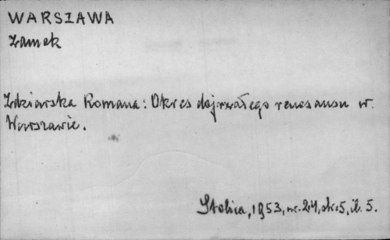 WARSZAWA
Zamek
Zdziarska Romana: Okres dojrzałego renesansu w
Warszawie.
Stolica, 1953, nr. 24, str. 5, il. 5.